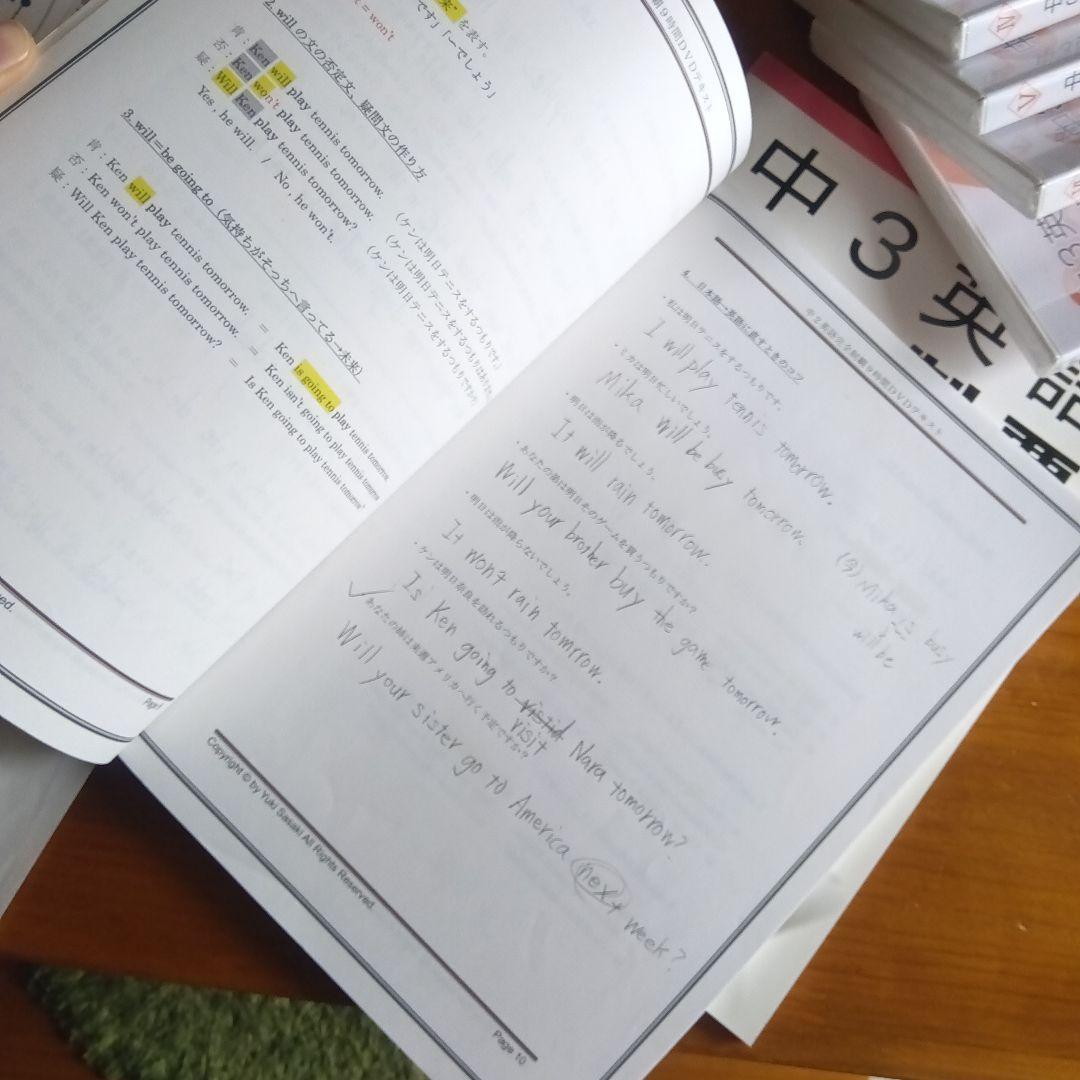 来"を表す。
です」「~でしょう」
t = won't
2. willの文の否定文、疑問文の作り方
肯：Ken will play tennis tomorrow.
否：Ken won't play tennis tomorrow.
疑：Will Ken play tennis tomorrow?
Yes , he will. / No , he won't.
(ケンは明日テニスをするつもりです。)
(ケンは明日テニスをするつもりはありません。)
(ケンは明日テニスをするつもりですか?)
3. will＝be going to（気持ちがそっちへ言ってる→未来）
肯：Ken will play tennis tomorrow. = Ken is going to play tennis tomorrow.
否：Ken won't play tennis tomorrow. = Ken isn't going to play tennis tomorrow
疑：Will Ken play tennis tomorrow? = Is Ken going to play tennis tomorrow?
ved.
9時間DVDテキスト
中2英語完全制覇9時間DVDテキスト
4. 日本語→英語に直すときのコツ
・私は明日テニスをするつもりです。
I will play tennis tomorrow.
・ミカは明日忙しいでしょう。
Mika will be busy tomorrow.
(今) Mika is busy
will be
・明日は雨が降るでしょう。
It will rain tomorrow.
・あなたの弟は明日そのゲームを買うつもりですか?
Will your brother buy the game tomorrow.
・明日は雨が降らないでしょう。
It won't rain tomrrow.
・ケンは明日奈良を訪れるつもりですか?
Is Ken going to visit Nara tomorrow?
・あなたの姉は来週アメリカへ行く予定ですか?
Will your sister go to America next week?
Copyright © by Yuki Sasaki All Rights Reserved.
Page 10
中3英語